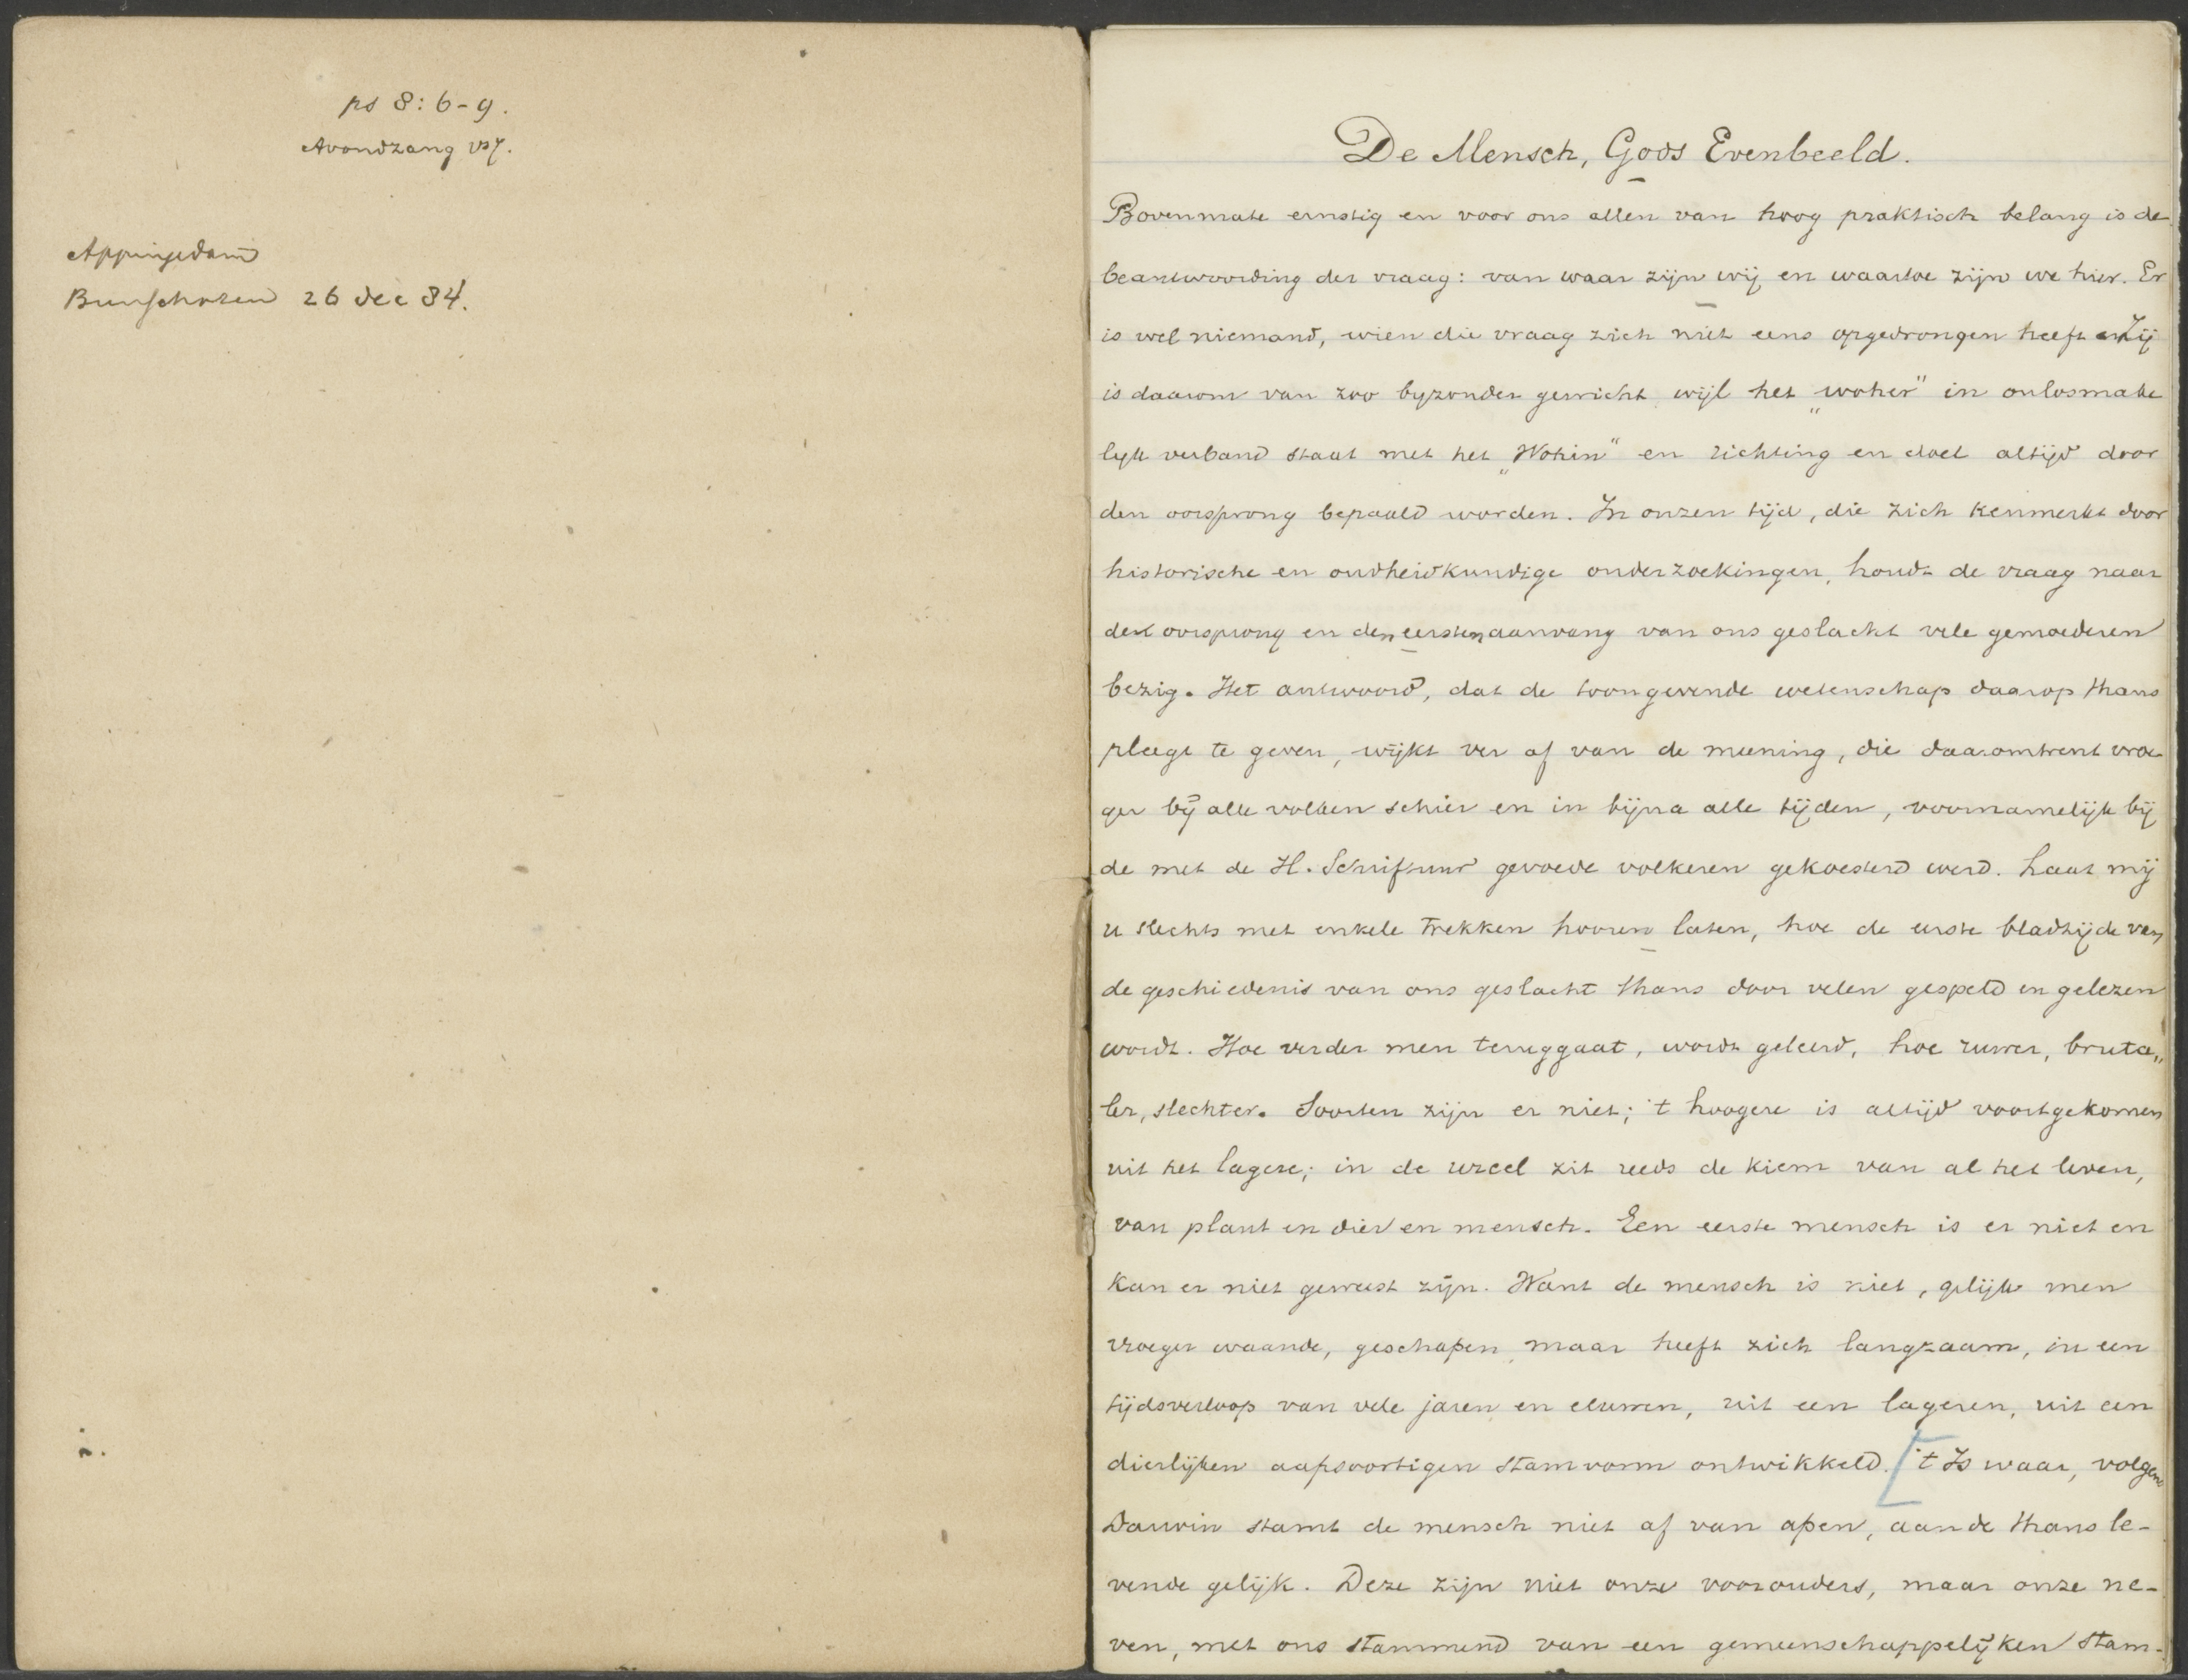 ps 8:6-9.
Avondzang vs 7.
Appingedam
Bunschoten 26 dec 84.
De Mensch, Gods Evenbeeld.
Bovenmate ernstig en voor ons allen van hoog praktisch belang is de
beantwoording der vraag: van waar zijn wij en waartoe zijn we hier. Er
is wel niemand, wien die vraag zich niet eens opgedrongen heeft Zij
is daarom van zoo byzonder gewicht wijl het "woher" in onlosmake
lyk verband staat met het "Wohin" en richting en doel altijd door
den oorsprong bepaald worden. In onzen tijd, die zich kenmerkt door
historische en oudheidkundige onderzoekingen, houdt de vraag naar
den oorsprong en den eersten aanvang van ons geslacht vele gemoederen
bezig. Het antwoord, dat de toongevende wetenschap daarop thans
pleegt te geven, wijkt ver af van de meening, die daaromtrent vroe
ger bij alle volken schier en in bijna alle tijden, voornamelijk bij
de met de H. Schriftuur gevoede volkeren gekoesterd werd. Laat mij
u slechts met enkele trekken hooren laten, hoe de eerste bladzijde van
de geschiedenis van ons geslacht thans door velen gespeld en gelezen
wordt. Hoe verder men teruggaat, wordt geleerd, hoe ruwer, bruta„
ler, slechter. Soorten zijn er niet; 't hoogere is altijd voortgekomen
uit het lagere; in de urcel zit reeds de kiem van al het leven,
van plant en dier en mensch. Een eerste mensch is er niet en
kan er niet geweest zijn. Want de mensch is niet, gelijk men
vroeger waande, geschapen, maar heeft zich langzaam, in een
tijdsverloop van vele jaren en eeuwen, uit een lageren, uit een
dierlijken aapsoortigen stamvorm ontwikkeld. ['t Is waar, volgens
Darwin stamt de mensch niet af van apen, aan de thans le-
vende gelijk. Deze zijn niet onze voorouders, maar onze ne-
ven, met ons stammend van een gemeenschappelijken stam-